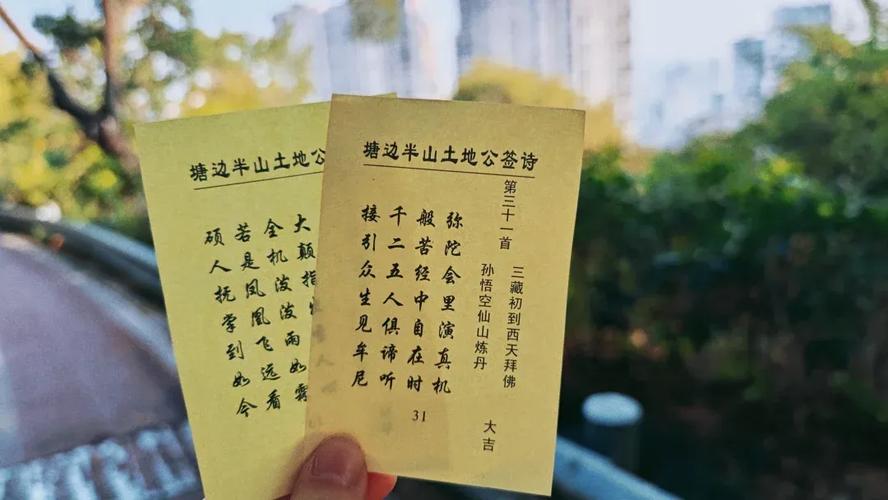 塘边半山土地公
大颠指
全机泼泼雨如
若是凤凰飞远看
硕人抚掌到如今
塘边半山土地公签诗
第三十一首
三藏初到西天拜佛
孙悟空仙山炼丹
大吉
弥陀会里演真机
般苦经中自在时
千二五人俱谛听
接引众生见牟尼
31